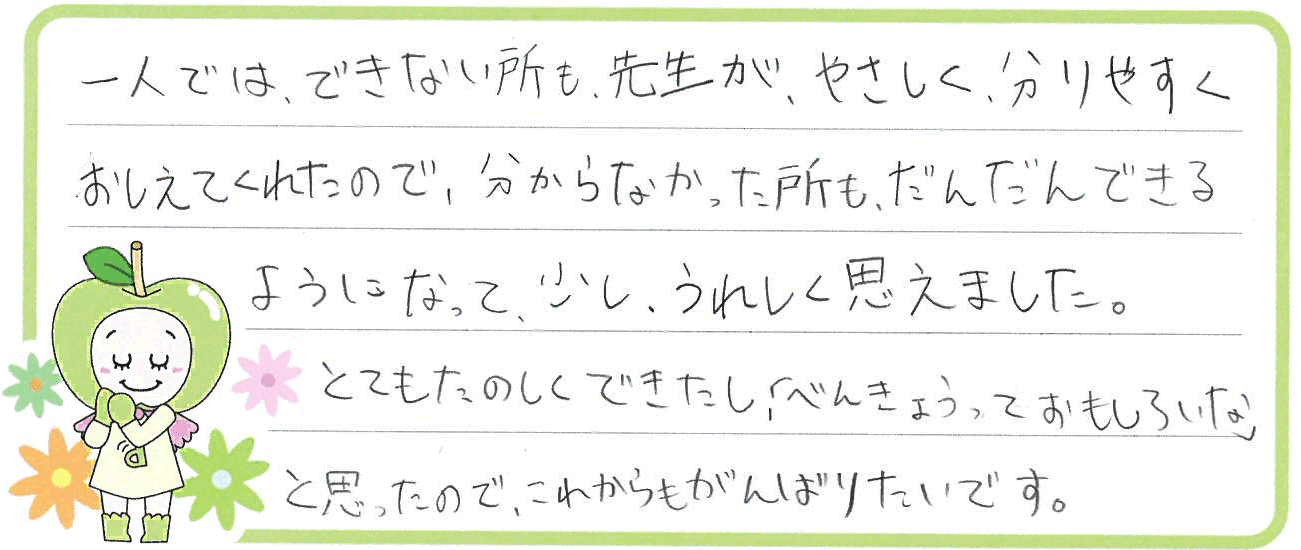 一人では、できない所も、先生が、やさしく、分りやすく
おしえてくれたので、分からなかった所も、だんだんできる
ようになって、少し、うれしく思えました。
とてもたのしくできたし、「べんきょうっておもしろいな」
と思ったので、これからもがんばりたいです。